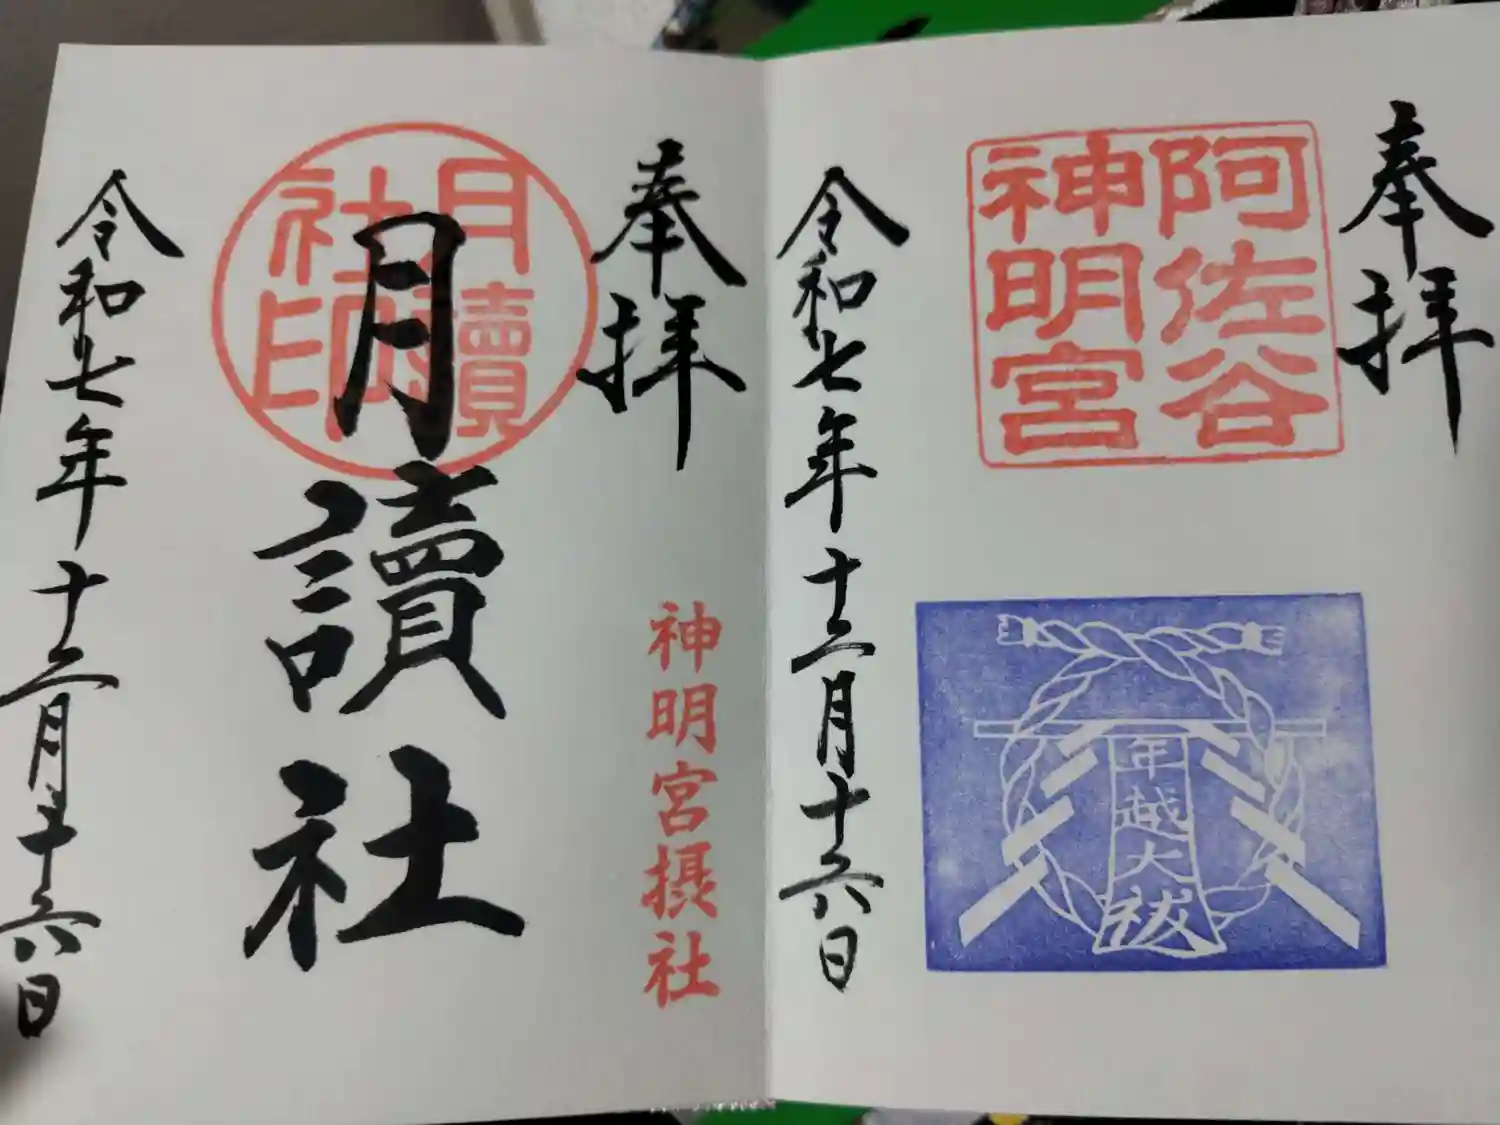 奉拝
阿佐谷
神明宮
年越大祓
令和七年十二月十六日
奉拝
神明宮摂社
月讀
社印
月讀社
令和七年十二月十六日